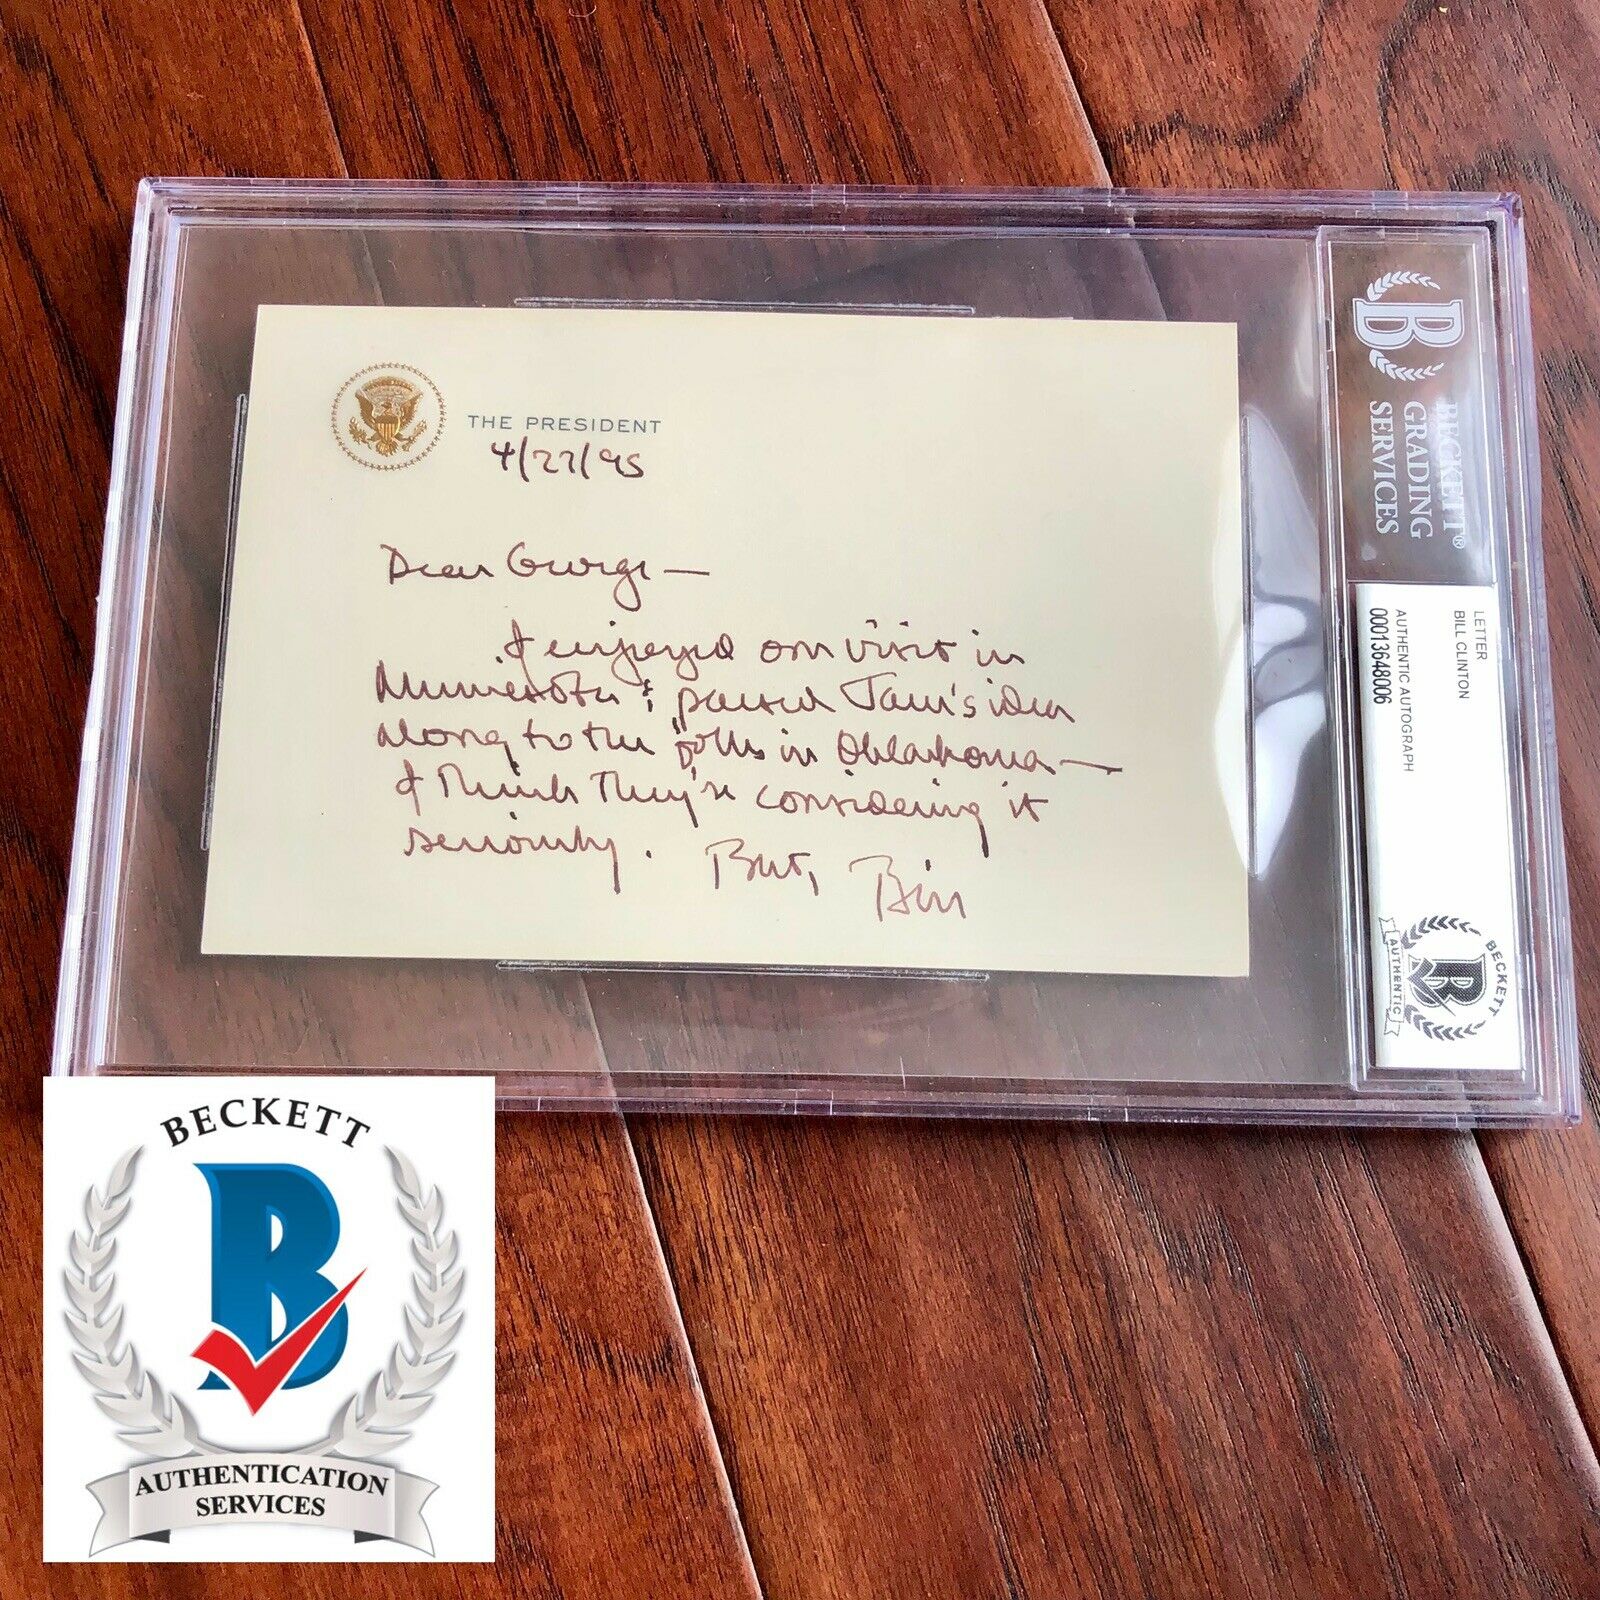 THE PRESIDENT
4/27/95
Dear George—
I enjoyed our visit in
Minnesota & passed Jane's idea
along to the folks in Oklahoma—
I think they're considering it
seriously. Best, Bill
BECKETT®
GRADING
SERVICES
LETTER
BILL CLINTON
AUTHENTIC AUTOGRAPH
00013648006
BECKETT
AUTHENTIC
BECKETT
AUTHENTICATION
SERVICES